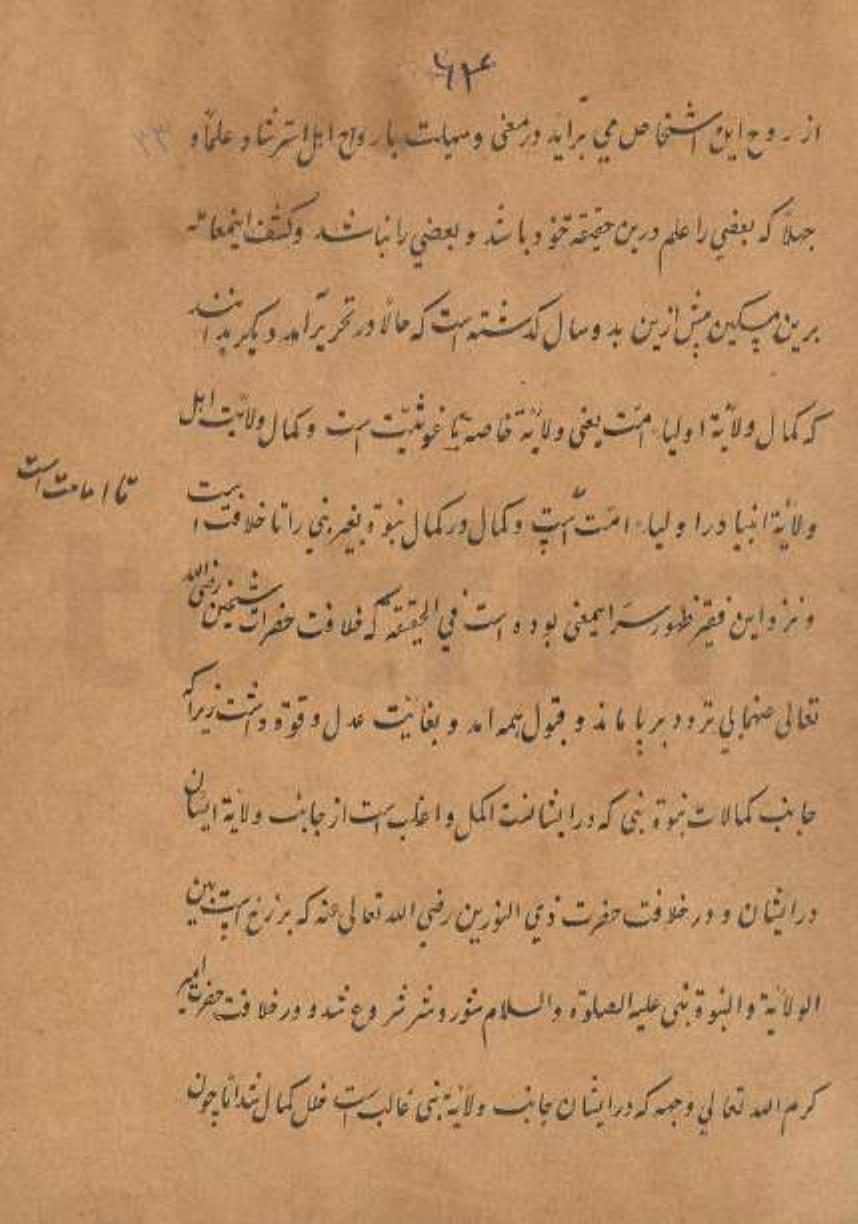 ۶۲۴
۳۳
از روح این اشخاص می برآید در معنی وسیلت با رواح اهل استرشاد علماً و
جهلاً که بعضی را علم درین حقیقة خود باشد و بعضی را نباشد وکشف اینمعامله
برین مسکین پیش ازین بدو سال گذشته است که حالا در تحریر آمد دیگر بدانند
که کمال ولایة اولیاء امت یعنی ولایة خاصه تا غوثیت است و کمال ولایت اهل بیت
تا امامت است
ولایة انبیا در اولیاء امت است و کمال در کمال نبوة بغیر نبی را تا خلافت
و نزد این فقیر ظهور سر اینمعنی بوده است فی الحقیقة که خلافت حضرات شیخین رضی الله
تعالی عنهما بی تردد بر پا ماند و قبول همه امد و بغایت عدل و قوة داشت زیراکه
جانب کمالات نبوة نبی که در ایشانست اکمل و اغلب است از جانب ولایة ایشان
در ایشان و در خلافت حضرت ذی النورین رضی الله تعالی عنه که برزخ است بین
الولایة والنبوة نبی علیه الصلوة والسلام شور و شر شروع شد و در خلافت حضرت امیر
کرم الله تعالی وجهه که در ایشان جانب ولایة نبی غالب است خلل کمال شد اما چون